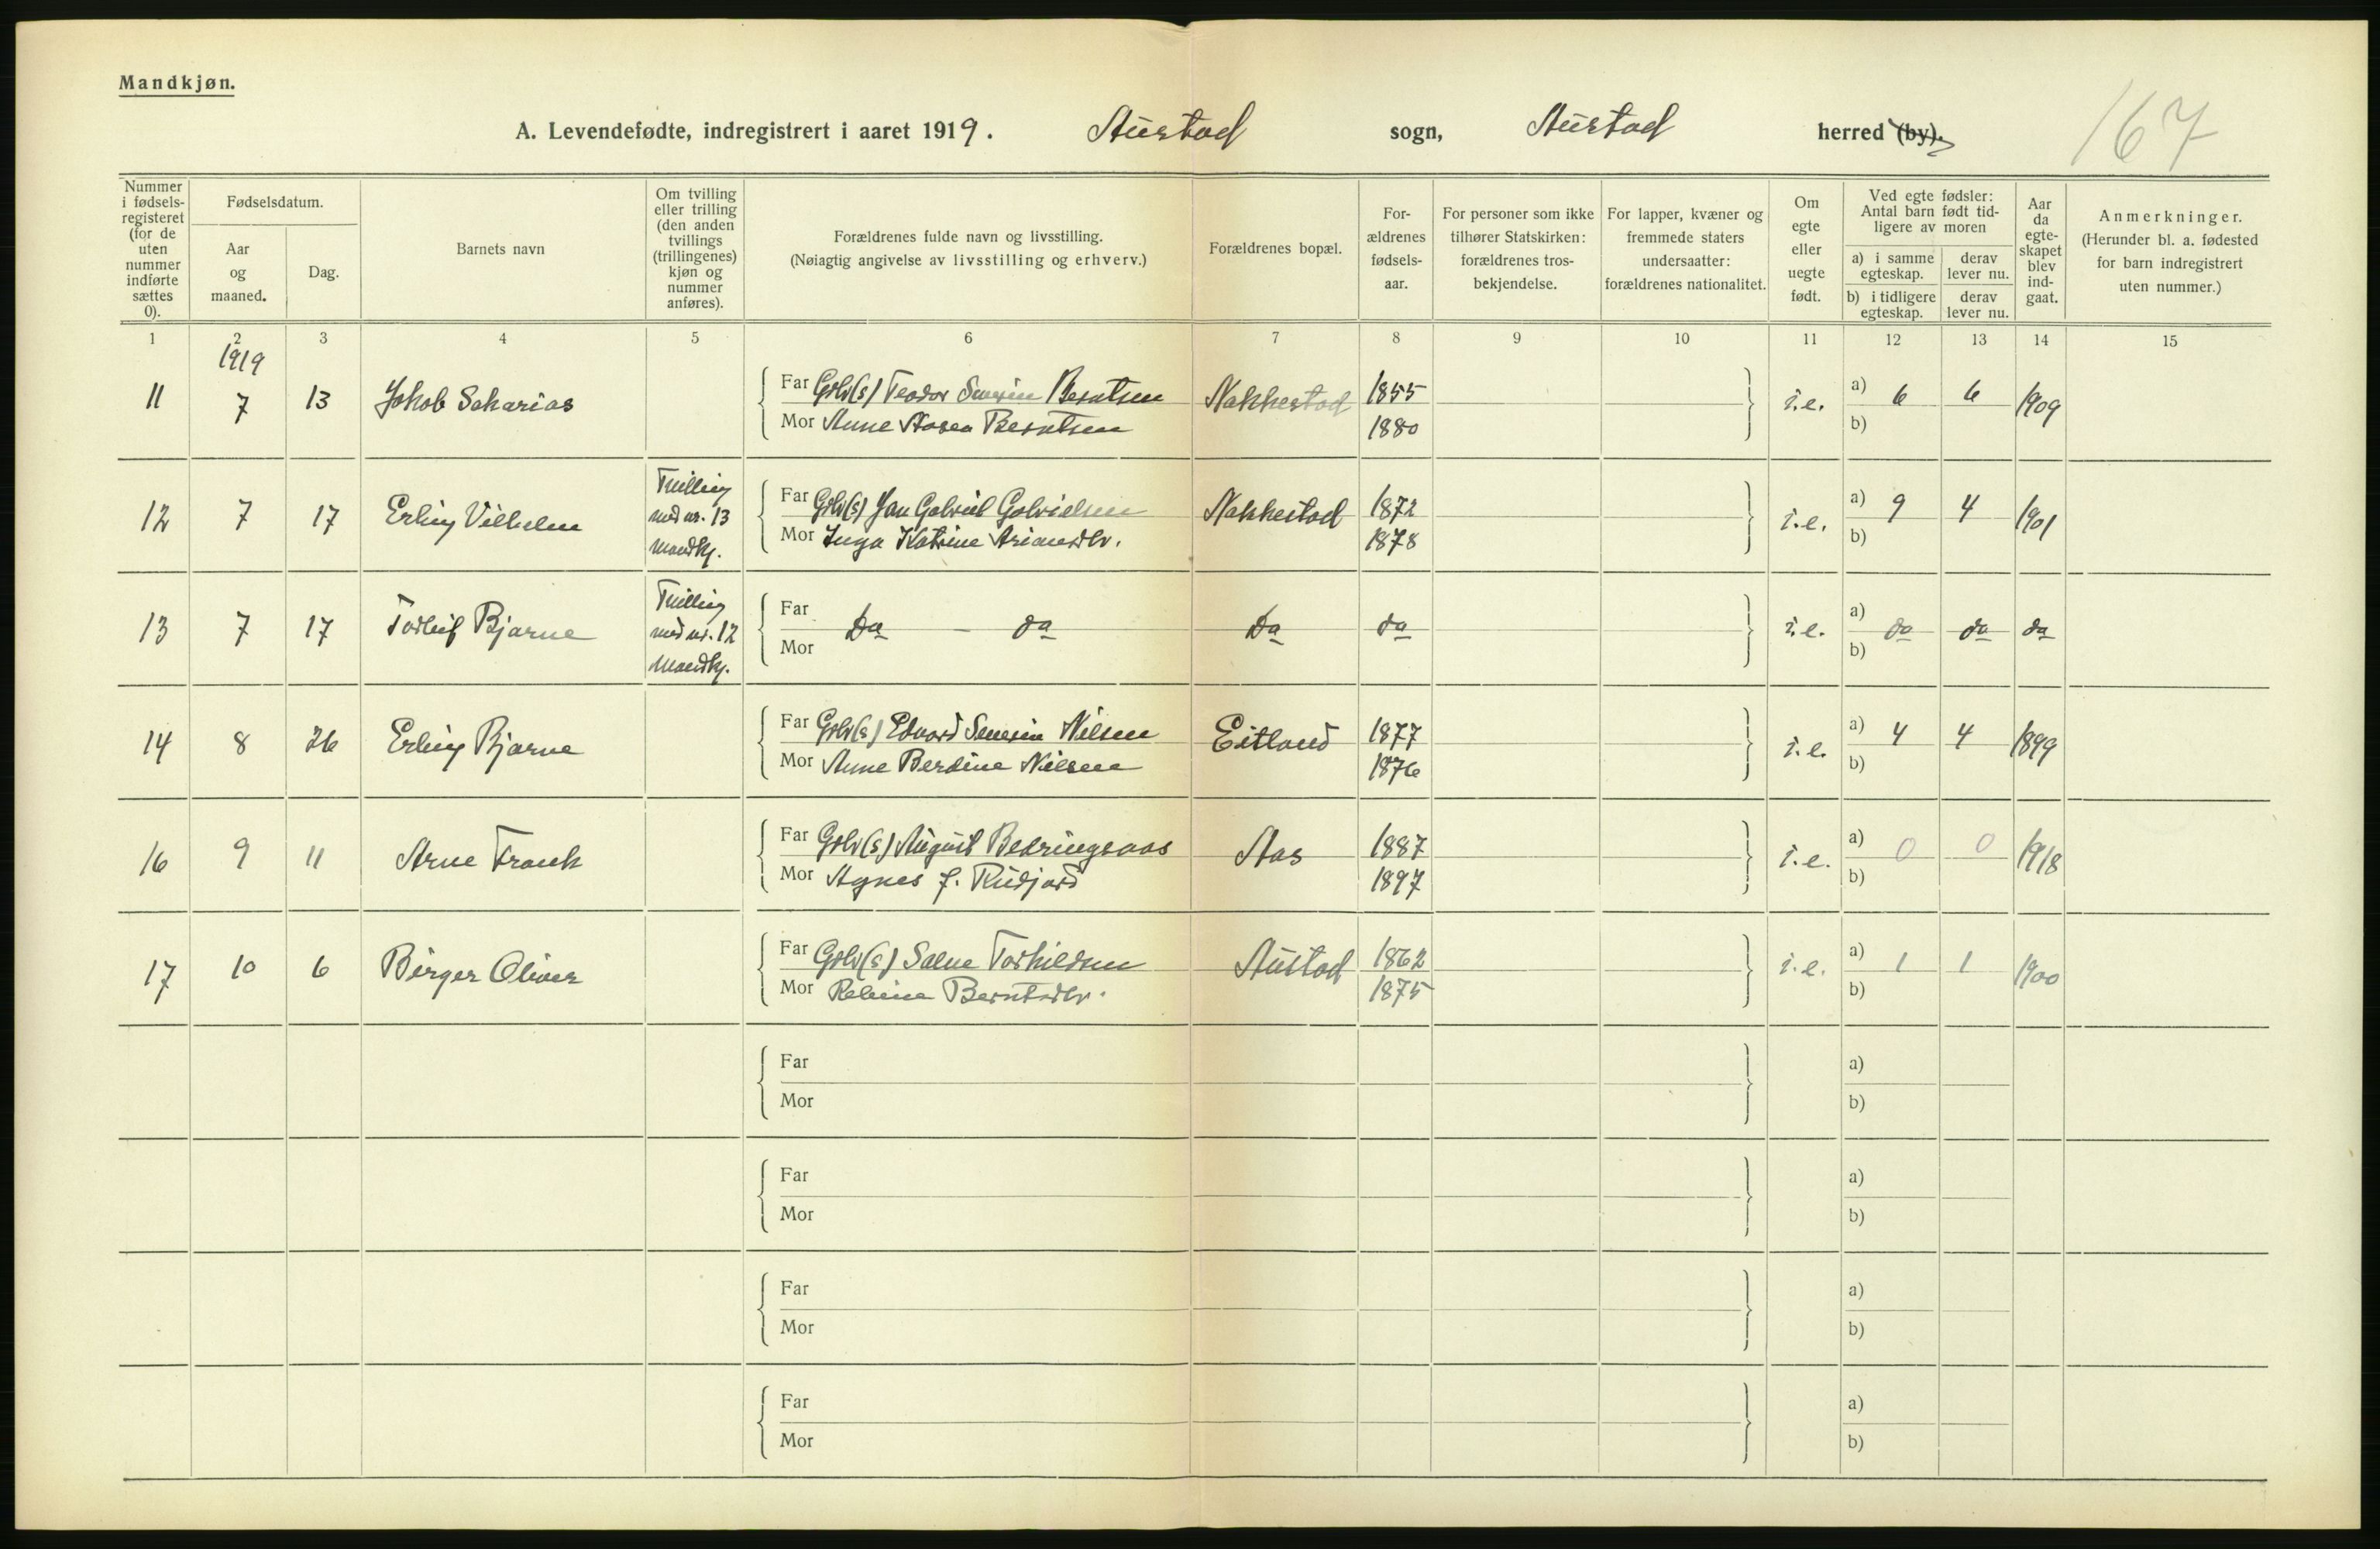 Mandkjøn.
A. Levendefødte, indregistrert i aaret 1919. Austad sogn, Austad herred (by). 167
Nummer i fødsels-registeret (for de uten nummer indførte sættes 0).
Fødselsdatum.
Aar og maaned.
Dag.
Barnets navn
Om tvilling eller trilling (den anden tvillings (trillingenes) kjøn og nummer anføres).
Forældrenes fulde navn og livsstilling.
(Nøiagtig angivelse av livsstilling og erhverv.)
Forældrenes bopæl.
For-ældrenes fødsels-aar.
For personer som ikke tilhører Statskirken: forældrenes tros-bekjendelse.
For lapper, kvæner og fremmede staters undersaatter: forældrenes nationalitet.
Om egte eller uegte født.
Ved egte fødsler: Antal barn født tid-ligere av moren
a) i samme egteskap.
derav lever nu.
b) i tidligere egteskap.
derav lever nu.
Aar da egte-skapet blev ind-gaat.
Anmerkninger.
(Herunder bl. a. fødested for barn indregistrert uten nummer.)
1 2 3 4 5 6 7 8 9 10 11 12 13 14 15
1919
11 7 13 Jakob Sakarias Far Grbr(s) Teodor Severin Berntsen Nakkestad 1855 i.e. a) 6 6 1909
Mor Anne Aasea Berntsen 1880 b)
12 7 17 Erling Vilhelm Tvilling med nr. 13 mandkj. Far Grbr(s) Jan Gabriel Gabrielsen Nakkestad 1872 i.e. a) 9 4 1901
Mor Inga Katrine Ariansdtr. 1878 b)
13 7 17 Torleif Bjarne Tvilling med nr. 12 Mandkj. Far Da da Da da i.e. a) da da da
Mor b)
14 8 26 Erling Bjarne Far Grbr(s) Edvard Severin Nilsen Eitland 1877 i.e. a) 4 4 1899
Mor Anne Berdine Nilsen 1876 b)
16 9 11 Arne Frank Far Grbr(s) August Bedringsaas Aas 1887 i.e. a) 0 0 1918
Mor Agnes J. Rudjord 1897 b)
17 10 6 Birger Oliver Far Grbr(s) Salve Torkildsen Austad 1862 i.e. a) 1 1 1900
Mor Berntsdtr. 1875 b)
Far a)
Mor b)
Far a)
Mor b)
Far a)
Mor b)
Far a)
Mor b)